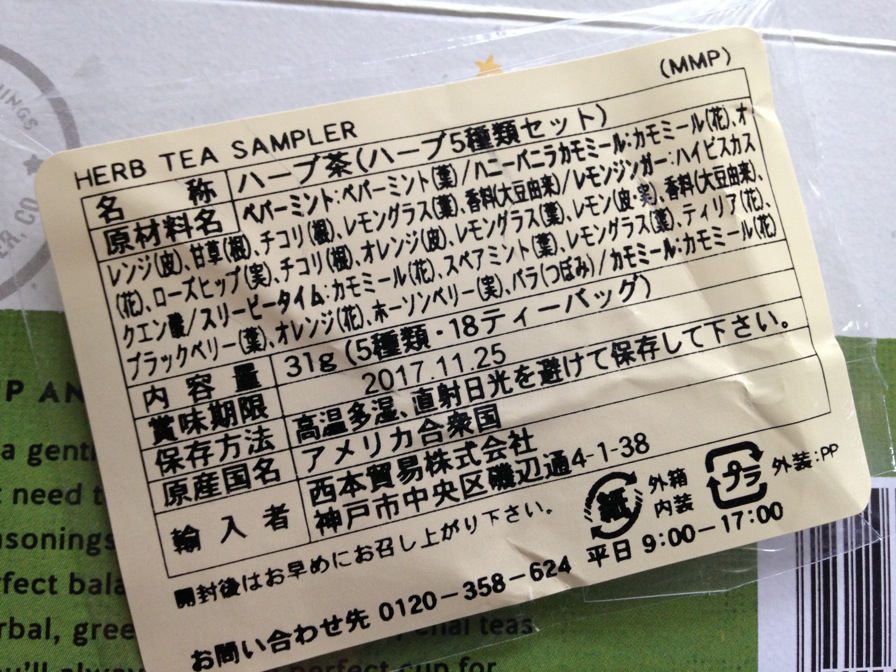 (MMP)
HERB TEA SAMPLER
名称 ハーブ茶(ハーブ5種類セット)
原材料名 ペパーミント:ペパーミント(葉)/ハニーバニラカモミール:カモミール(花)、オ
レンジ(皮)、甘草(根)、チコリ(根)、レモングラス(葉)、香料(大豆由来)/レモンジンガー:ハイビスカス
(花)、ローズヒップ(実)、チコリ(根)、オレンジ(皮)、レモングラス(葉)、レモン(皮・実)、香料(大豆由来)、
クエン酸/スリーピータイム:カモミール(花)、スペアミント(葉)、レモングラス(葉)、ティリア(花)、
ブラックベリー(葉)、オレンジ(花)、ホーソンベリー(実)、バラ(つぼみ)/カモミール:カモミール(花)
内容量 31g(5種類・18ティーバッグ)
賞味期限 2017.11.25
保存方法 高温多湿、直射日光を避けて保存して下さい。
原産国名 アメリカ合衆国
輸入者 西本貿易株式会社
神戸市中央区磯辺通4-1-38
開封後はお早めにお召し上がり下さい。
紙 外箱
内装
プラ 外装:PP
お問い合わせ先 0120-358-624 平日 9:00-17:00
UP AN
a gentl
need t
asonings
rfect bala
rbal, gree
chai teas
you'll alway
perfect cup for